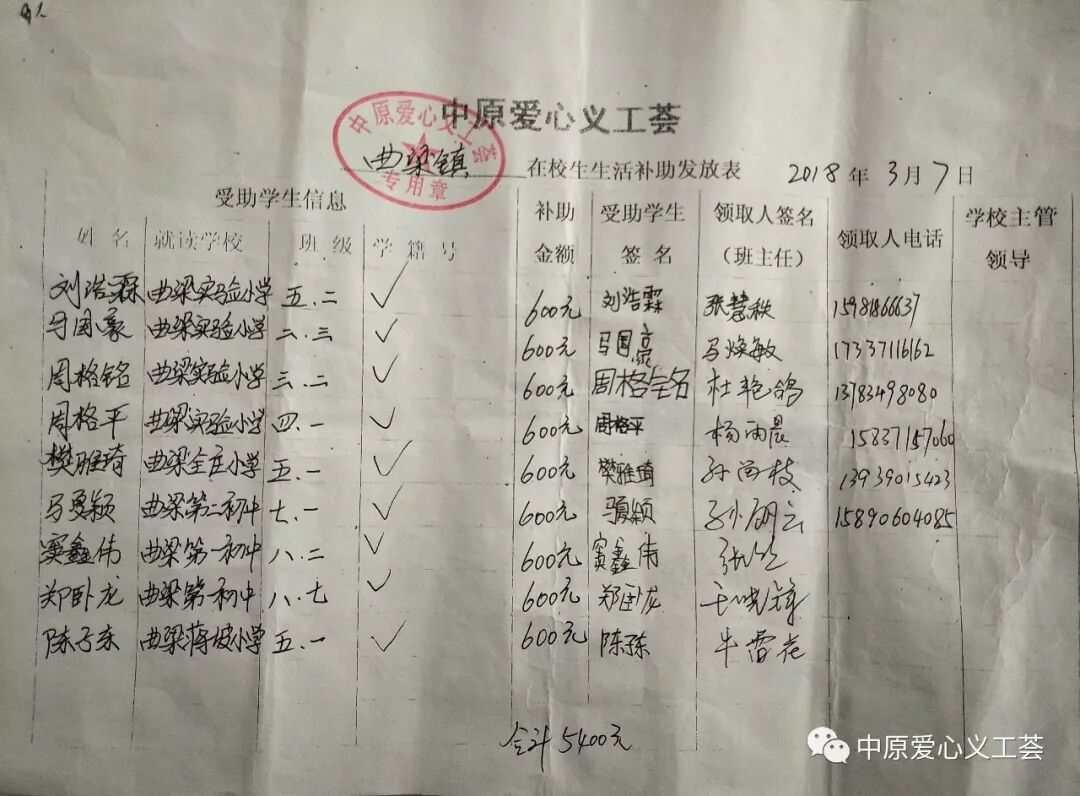 中原爱心义工荟
中原爱心义工荟 专用章
曲梁镇 在校生生活补助发放表 2018年3月7日
受助学生信息 补助金额 受助学生签名 领取人签名（班主任） 领取人电话 学校主管领导
姓名 就读学校 班级 学籍号
刘浩霖 曲梁实验小学 五.二 ✓ 600元 刘浩霖 张慧秩 15981866637
马国豪 曲梁实验小学 二.三 ✓ 600元 马国豪 马焕敏 17337116162
周格铭 曲梁实验小学 三.二 ✓ 600元 周格铭 杜艳鸽 13783498080
周格平 曲梁实验小学 四.一 ✓ 600元 周格平 杨雨晨 15837157060
樊雅琦 曲梁全庄小学 五.一 ✓ 600元 樊雅琦 孙尚枝 13939015423
马曼颖 曲梁第二初中 七.一 ✓ 600元 马曼颖 孙朋云 15890604085
窦鑫伟 曲梁第一初中 八.二 ✓ 600元 窦鑫伟
郑卧龙 曲梁第一初中 八.七 ✓ 600元 郑卧龙
陈子东 曲梁蒋坡小学 五.一 ✓ 600元 陈子东 牛雪花
合计5400元
中原爱心义工荟